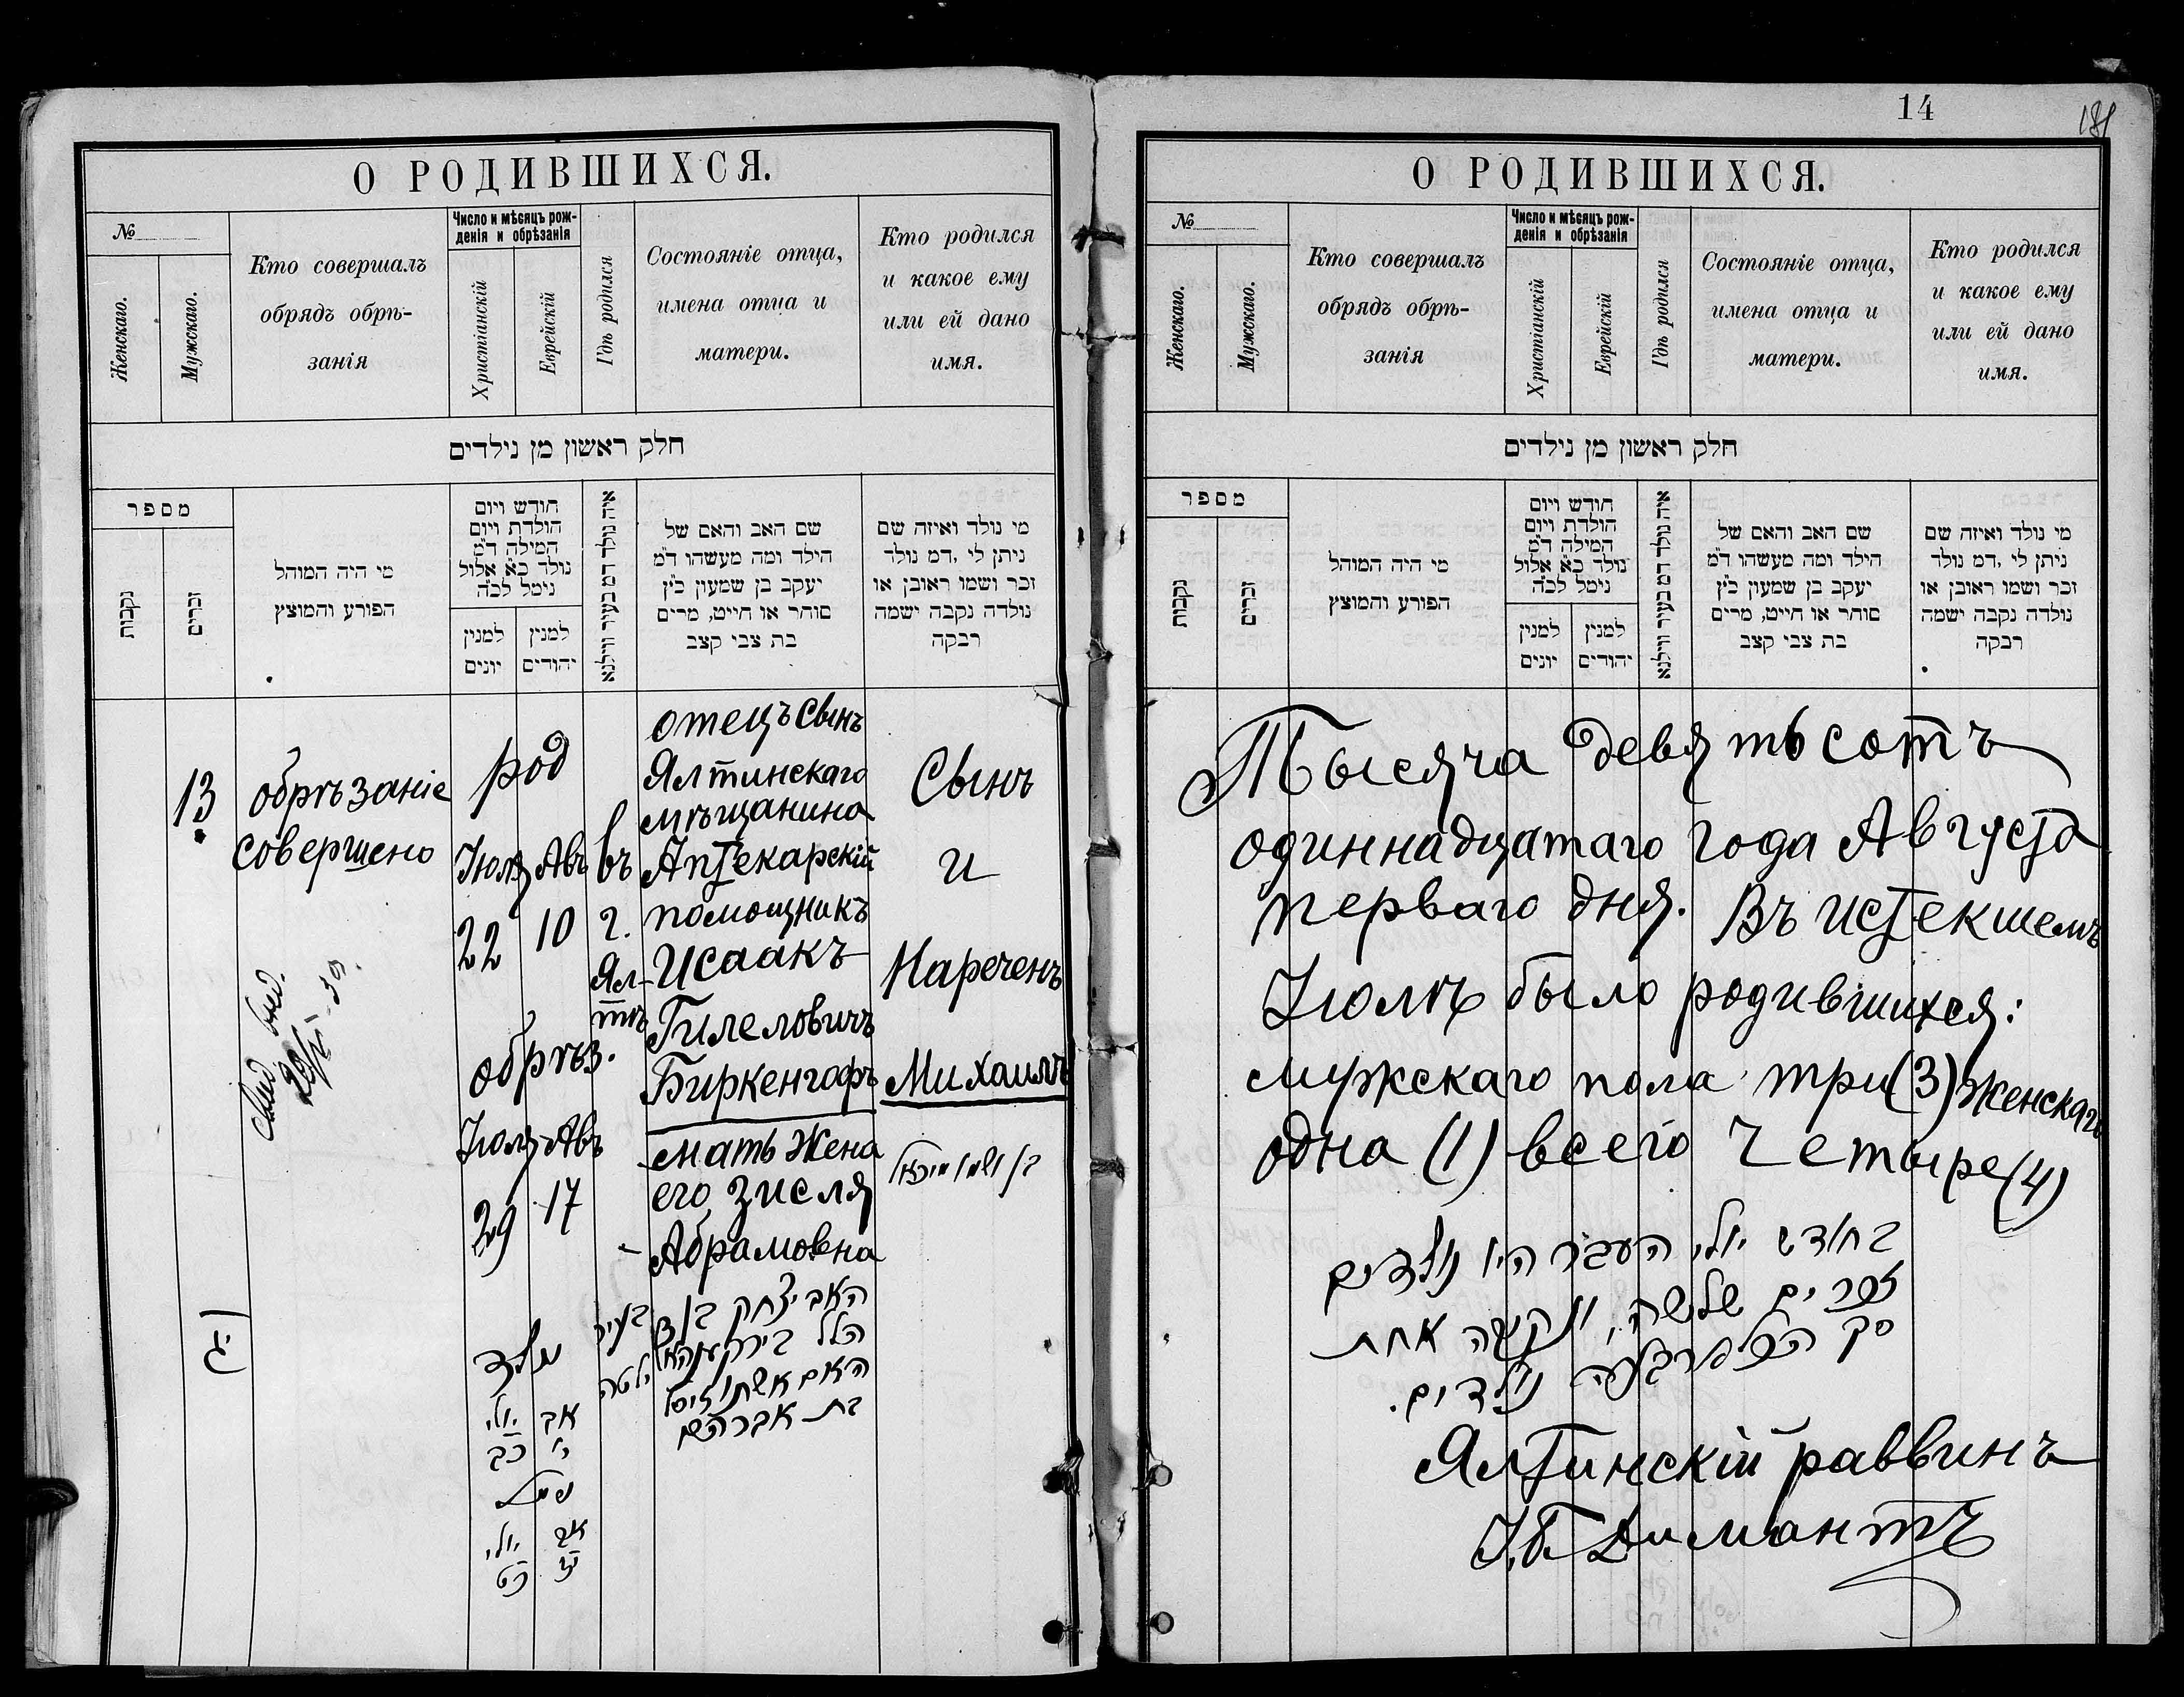 О РОДИВШИХСЯ.
№
Женскаго.
Мужскаго.
Кто совершалъ
обрядъ обрѣ-
занія
Число и мѣсяцъ рож-
денія и обрѣзанія
Христіанскій
Еврейскій
Гдѣ родился
Состояніе отца,
имена отца и
матери.
Кто родился
и какое ему
или ей дано
имя.
חלק ראשון מן נילדים
מספר
נקבות
זכרים
מי היה המוהל
הפורע והמוצץ
חודש ויום
הולדת ויום
המילה ד"מ
נולד כ"א אלול
נימל לכ"ה
למנין
יונים
למנין
יהודים
איה נולד דמ בעיר ווילנא
שם האב והאם של
הילד ומה מעשהו ד"מ
יעקב בן שמעון כ"ץ
סוחר או חייט, מרים
בת צבי קצב
מי נולד ואיזה שם
ניתן לי ,דמ נולד
זכר ושמו ראובן או
נולדה נקבה ישמה
רבקה
13
обрѣзаніе
совершено
род
Іюля Авъ
22 10
обрѣз.
Іюля Авъ
29 17
въ
г.
Ял-
тѣ
отецъ сынъ
Ялтинскаго
мѣщанина
Аптекарскій
помощникъ
Исаакъ
Гилеловичъ
Биркенгофъ
мать жена
его Зисля
Абрамовна
Сынъ
и
Нареченъ
Михаилъ
בן ושמו מיכאל
יג
נולד
יולי אב
כב י
נימול
יולי אב
כט יז
בעיר
ילטה
האב יצחק בן
הלל
האם אשתו זיסל
בת אברהם
14
О РОДИВШИХСЯ.
№
Женскаго.
Мужскаго.
Кто совершалъ
обрядъ обрѣ-
занія
Число и мѣсяцъ рож-
денія и обрѣзанія
Христіанскій
Еврейскій
Гдѣ родился
Состояніе отца,
имена отца и
матери.
Кто родился
и какое ему
или ей дано
имя.
חלק ראשון מן נילדים
מספר
נקבות
זכרים
מי היה המוהל
הפורע והמוצץ
חודש ויום
הולדת ויום
המילה ד"מ
נולד כ"א אלול
נימל לכ"ה
למנין
יונים
למנין
יהודים
איה נולד דמ בעיר ווילנא
שם האב והאם של
הילד ומה מעשהו ד"מ
יעקב בן שמעון כ"ץ
סוחר או חייט, מרים
בת צבי קצב
מי נולד ואיזה שם
ניתן לי ,דמ נולד
זכר ושמו ראובן או
נולדה נקבה ישמה
רבקה
Тысяча девятьсотъ
одиннадцатаго года Августа
перваго дня. Въ истекшемъ
Іюлѣ было родившихся:
мужскаго пола три (3) женскаго
одна (1) всего четыре (4)
בחודש יולי העבר היו נולדים
זכרים שלשה, ונקבה אחת
סך הכל ארבעה נולדים.
Ялтинскій раввинъ
І.Б. Димантъ